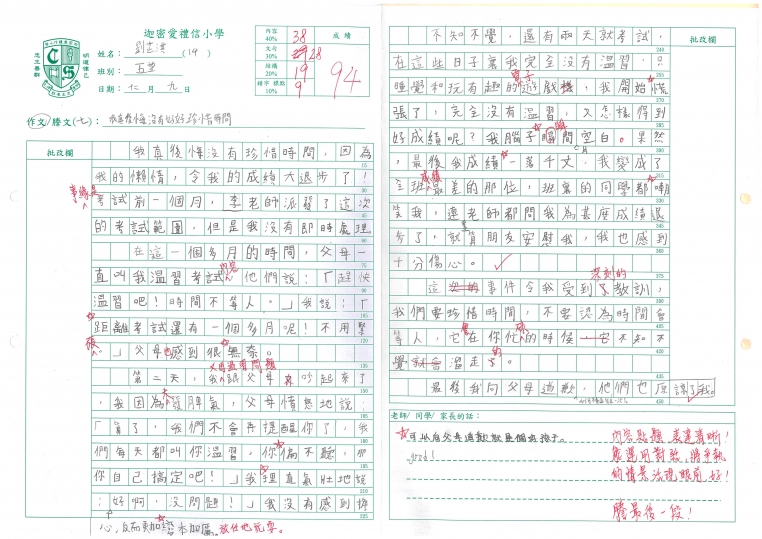 迦密愛禮信小學
姓名：
班別：五
日期：十二月九日
內容 40% 38
文句 30% 28
結構 20% 19
錯字 標點 10% 9
成績
94
作文/謄文(七)：我真後悔沒有好好珍惜時間
批改欄
我真後悔沒有珍惜時間，因為
我的懶惰，令我的成績大退步了！
事緣是
考試前一個月，李老師派發了這次
的考試範圍，但是我沒有即時處理
在這一個多月的時間，父母一
直叫我溫習考試內容，他們說：「趕快
溫習吧！時間不等人。」我說：「
距離考試還有一個多月呢！不用緊
張。」父母也感到很無奈。
第二天，我跟父母吵起來了
，我因為大發脾氣，父母憤怒地說
「算了，我們不會再提醒你了，我
們每天都叫你溫習，你偏不聽，那
你自己搞定吧！」我理直氣壯地說
：好啊，沒問題！」我沒有感到擔
心，反而更加放任地玩耍。
批改欄
不知不覺，還有兩天就考試，
在這些日子裏我完全沒有溫習，只
睡覺和玩有趣的電子遊戲機，我開始慌
張了，完全沒有溫習，又怎樣得到
好成績呢？我腦子瞬間空白。果然
，最後我成績一落千丈，我變成了
全班成績最差的那位，班裏的同學都嘲
笑我，連老師都問我為甚麼成績退
步了，就算朋友安慰我，我也感到
十分傷心。
這事件令我受到了深刻的教訓，
我們要珍惜時間，不要認為時間會
等人，它會在你忙碌的時候，不知不
覺的溜走了。
最後我向父母道歉，他們也原諒了我。
老師/ 同學/ 家長的話：
可以向父母道歉就是個好孩子。
good!
內容點題，表達清晰！
能運用對話，將爭執
的情景活現眼前，好！
謄最後一段！